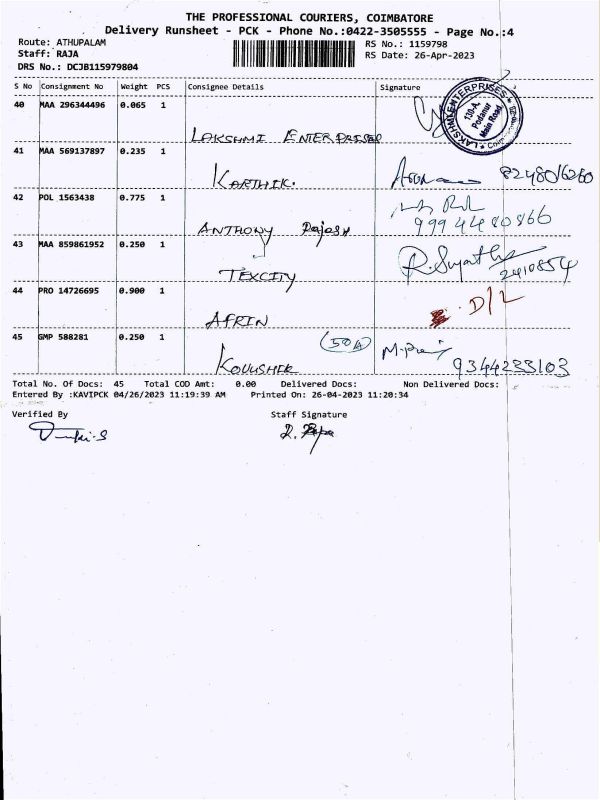 THE PROFESSIONAL COURIERS, COIMBATORE
Delivery Runsheet - PCK - Phone No.:0422-3505555 - Page No.:4
Route: ATHUPALAM RS No.: 1159798
Staff: RAJA RS Date: 26-Apr-2023
DRS No.: DCJB115979804
S No Consignment No Weight PCS Consignee Details Signature
40 MAA 296344496 0.065 1
LAKSHMI ENTERPRISES
LAKSHMI ENTERPRISES 130-A, Podanur Main Road
41 MAA 569137897 0.235 1
KARTHIK. 8248016260
42 POL 1563438 0.775 1
ANTHONY Rajesh 9994480866
43 MAA 859861952 0.250 1
TEXCITY 2410854
44 PRO 14726695 0.900 1
AFRIN D/L
45 GMP 588281 0.250 1
KOVUSHIK 9344233103
Total No. Of Docs: 45 Total COD Amt: 0.00 Delivered Docs: Non Delivered Docs:
Entered By :KAVIPCK 04/26/2023 11:19:39 AM Printed On: 26-04-2023 11:20:34
Verified By Staff Signature